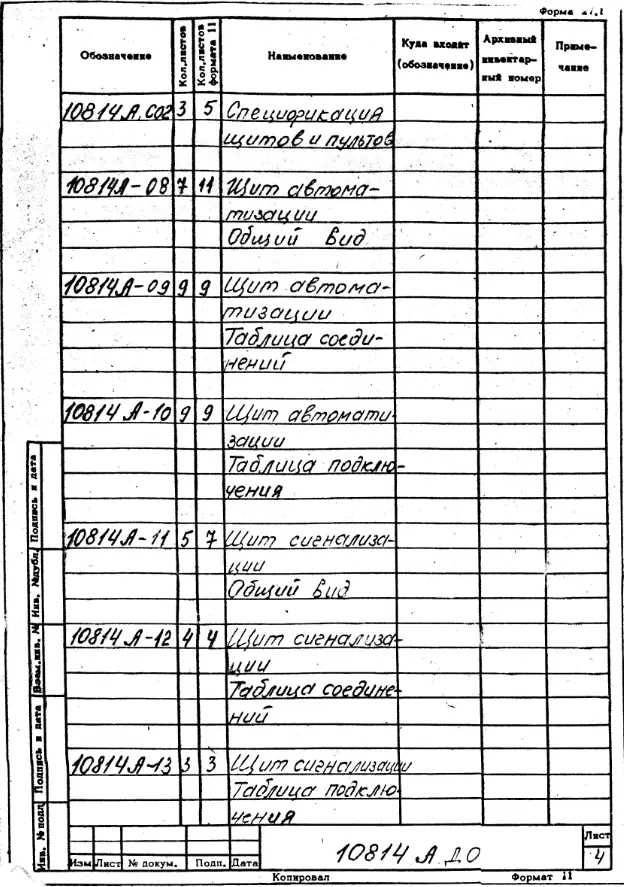 Форма 27.1
Обозначение Кол.листов Кол.листов формата 11 Наименование Куда входит (обозначение) Архивный инвентар- ный номер Приме- чание
10814А.СО2 3 5 Спецификация
щитов и пультов
10814А-08 7 11 Щит автома-
тизации
Общий вид
10814А-09 9 9 Щит автома-
тизации
Таблица соеди-
нений
10814А-10 9 9 Щит автомати-
зации
Таблица подклю-
чения
10814А-11 5 7 Щит сигнализа-
ции
Общий вид
10814А-12 4 4 Щит сигнализа-
ции
Таблица соедине-
ний
10814А-13 3 3 Щит сигнализации
Таблица подклю-
чения
Подпись и дата
Инв. №дубл.
Взам.инв. №
Подпись и дата
Инв. № подл.
Изм Лист № докум. Подп. Дата
10814 А ДО
Лист
4
Копировал Формат 11